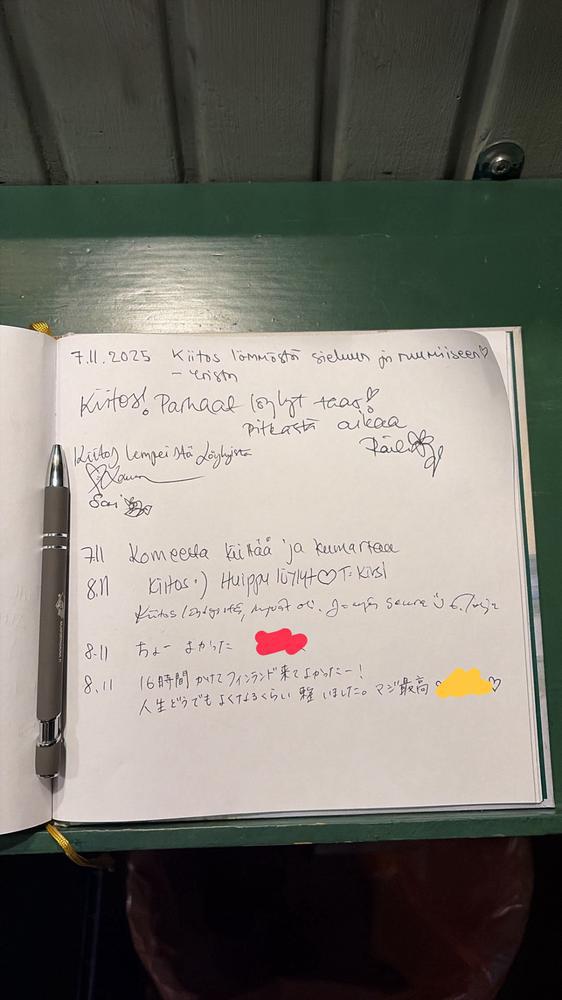 7.11.2025 Kiitos lämmöstä sieluun ja ruumiiseen♡
Kiitos! Parhaat löylyt taas!
pitkästä aikaa
Kiitos lempeistä Löylyistä
Sari
7.11 Komeesta kiittää ja kumartaa
8.11 Kiitos :) Huippu löylyt ♡ T: Kirsi
Kiitos
8.11 ちょー よかった
8.11 16時間かけてフィンランド来てよかったー!
人生どうでもよくなるくらい 整いました。マジ最高 ♡